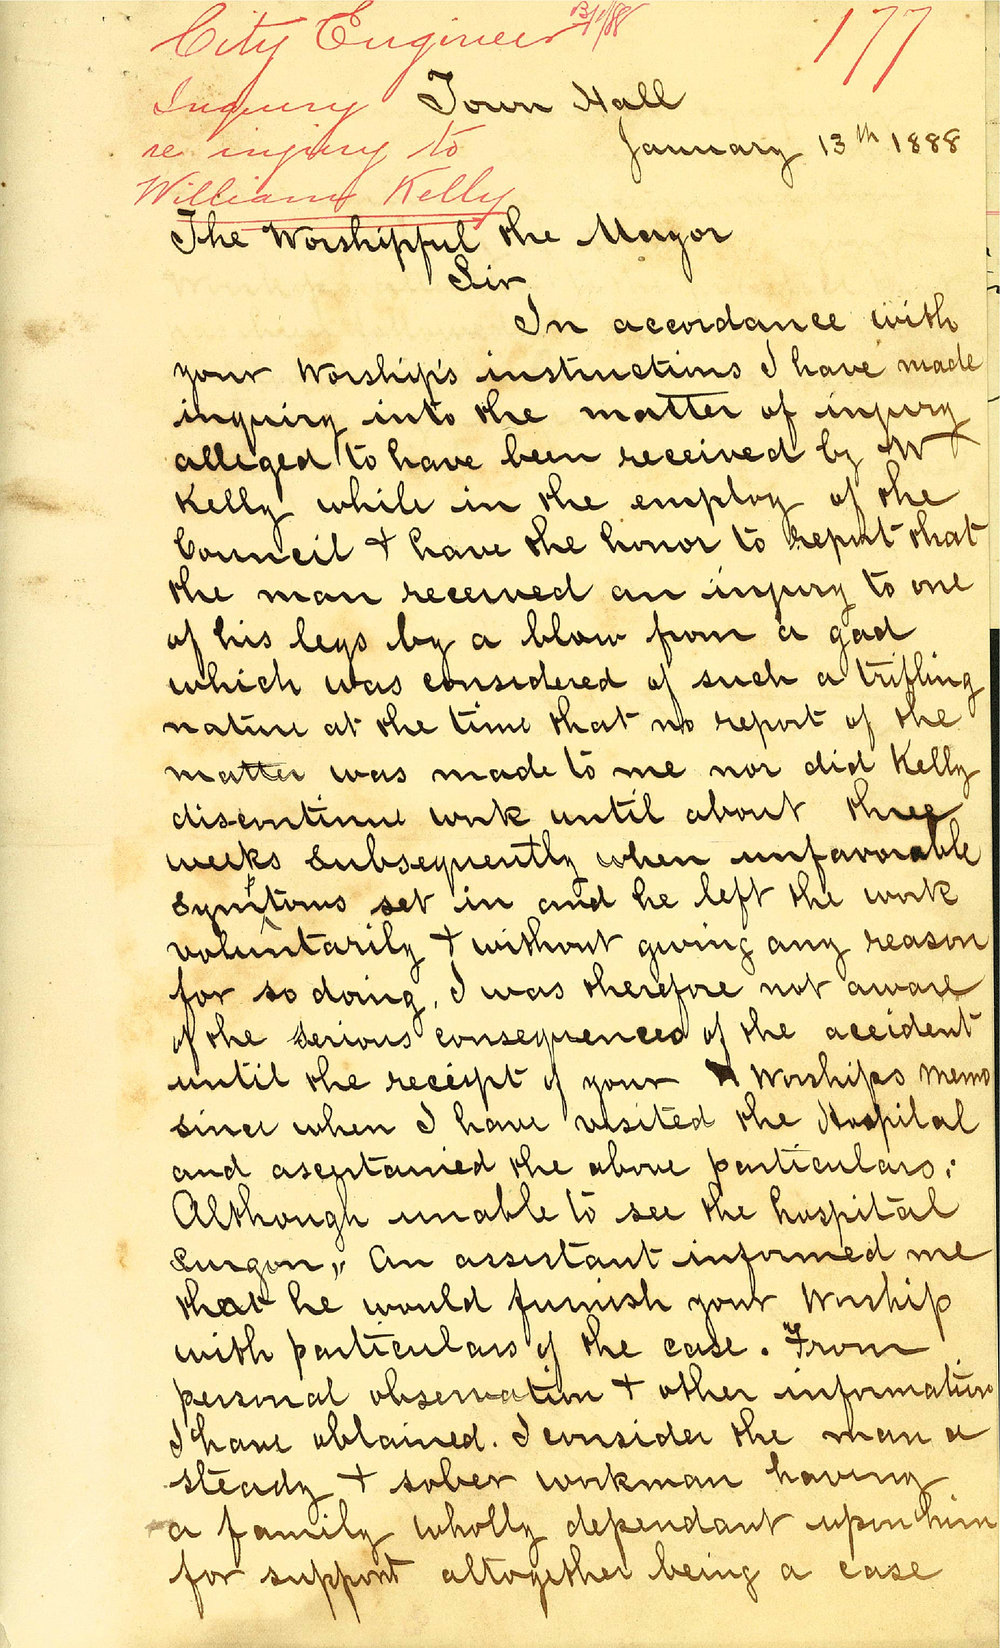 City Engineer 13/1/88
177
Inquiry
re injury to
William Kelly
Town Hall
January 13th 1888
The Worshipful the Mayor
Sir
In accordance with
your Worship's instructions I have made
inquiry into the matter of injury
alleged to have been received by Wm
Kelly while in the employ of the
Council + have the honor to report that
the man received an injury to one
of his legs by a blow from a gad
which was considered of such a trifling
nature at the time that no report of the
matter was made to me nor did Kelly
discontinue work until about three
weeks subsequently when unfavorable
symptoms set in and he left the work
voluntarily + without giving any reason
for so doing, I was therefore not aware
of the serious consequences of the accident
until the receipt of your Worships memo
since when I have visited the Hospital
and ascertained the above particulars;
Although unable to see the hospital
Surgon, An assistant informed me
that he would furnish your Worship
with particulars of the case. From
personal observation + other information
I have obtained. I consider the man a
steady + sober workman having
a family wholly dependant upon him
for support altogether being a case